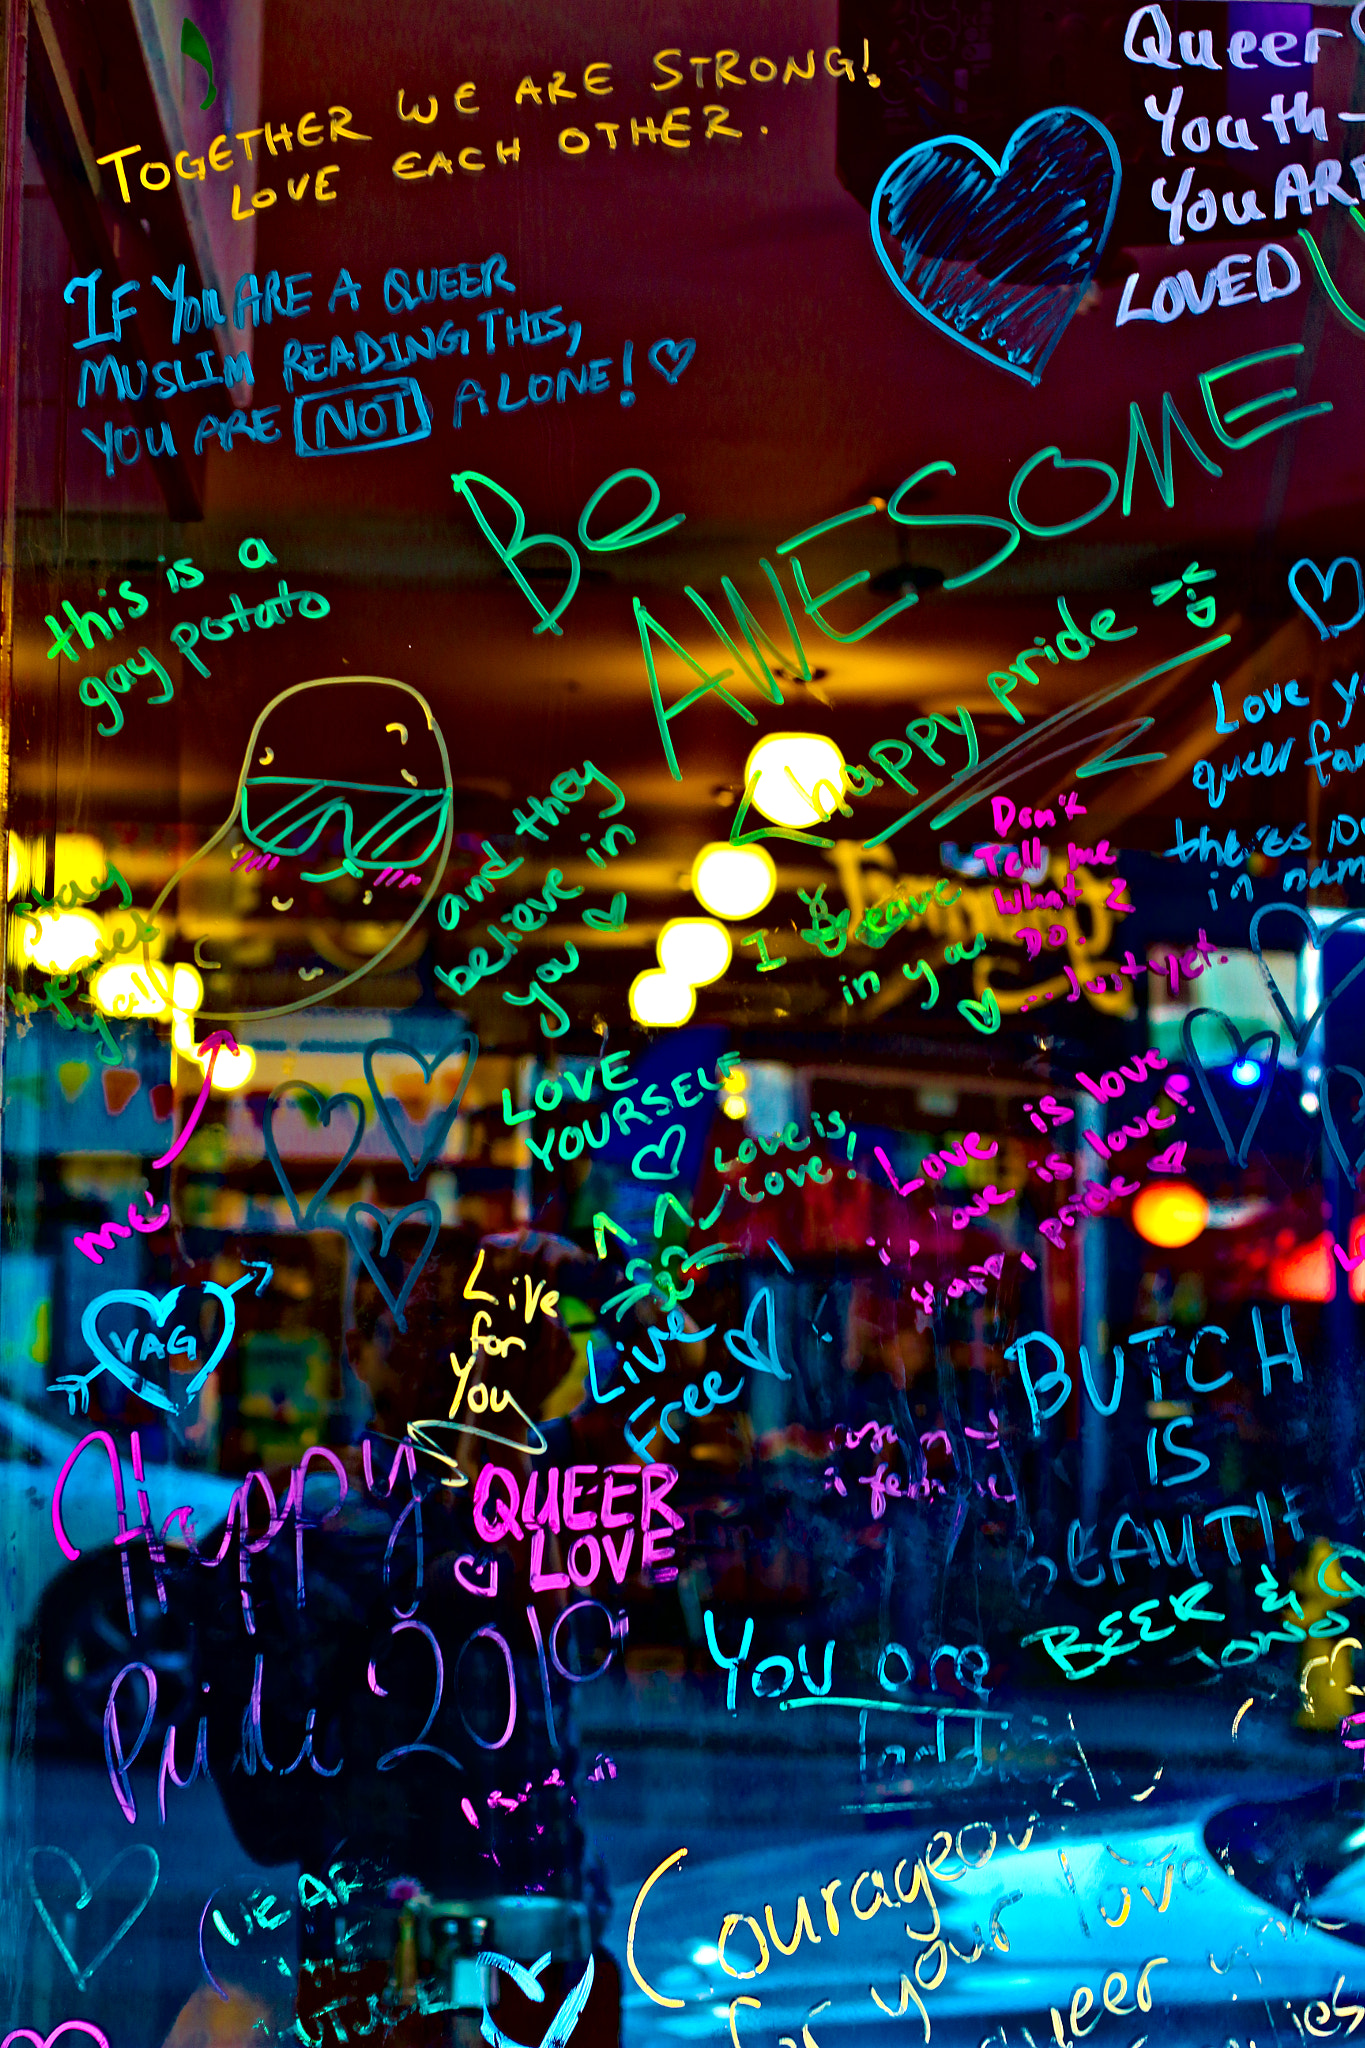 TOGETHER WE ARE STRONG!
LOVE EACH OTHER.
Queer
Youth-
You ARE
LOVED
IF YOU ARE A QUEER
MUSLIM READING THIS,
YOU ARE NOT ALONE!
Be
AWESOME
this is a
gay potato
happy pride
Love
queer
in
and they
believe in
you
I believe
in you
Don't
Tell me
What 2
DO.
...Just yet.
stay
me
LOVE
YOURSELF
Love is
Love!
Love is love
is love is love!
Happy pride
VAG
Live
for
You
Live
Free
BUTCH
IS
Happy
Pride 2019
QUEER
LOVE
BEER &
You are
Courageous
for your love
queer